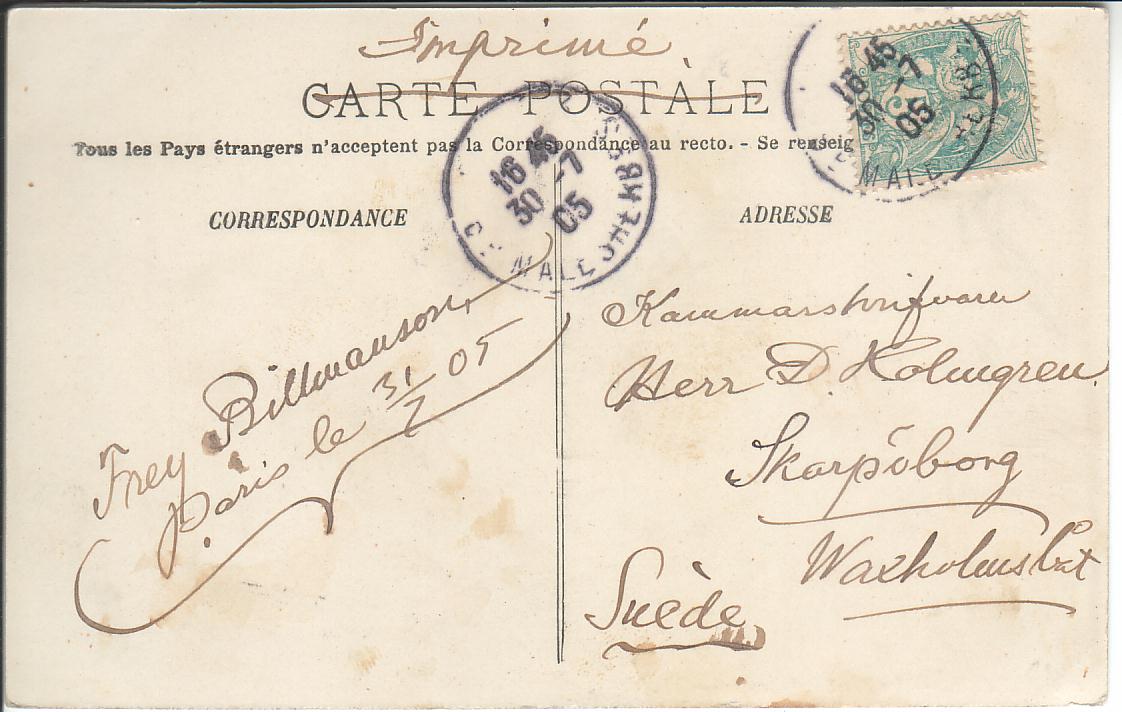 Imprimé
CARTE POSTALE
Tous les Pays étrangers n'acceptent pas la Correspondance au recto. - Se renseig
CORRESPONDANCE
ADRESSE
16 45
30 -7
05
16 45
30 -7
05
MALE
Frey Billmanson,
Paris le 31/7 05
Herr D Holmgren
Skarpöborg
Waxholmsbåt
Suède